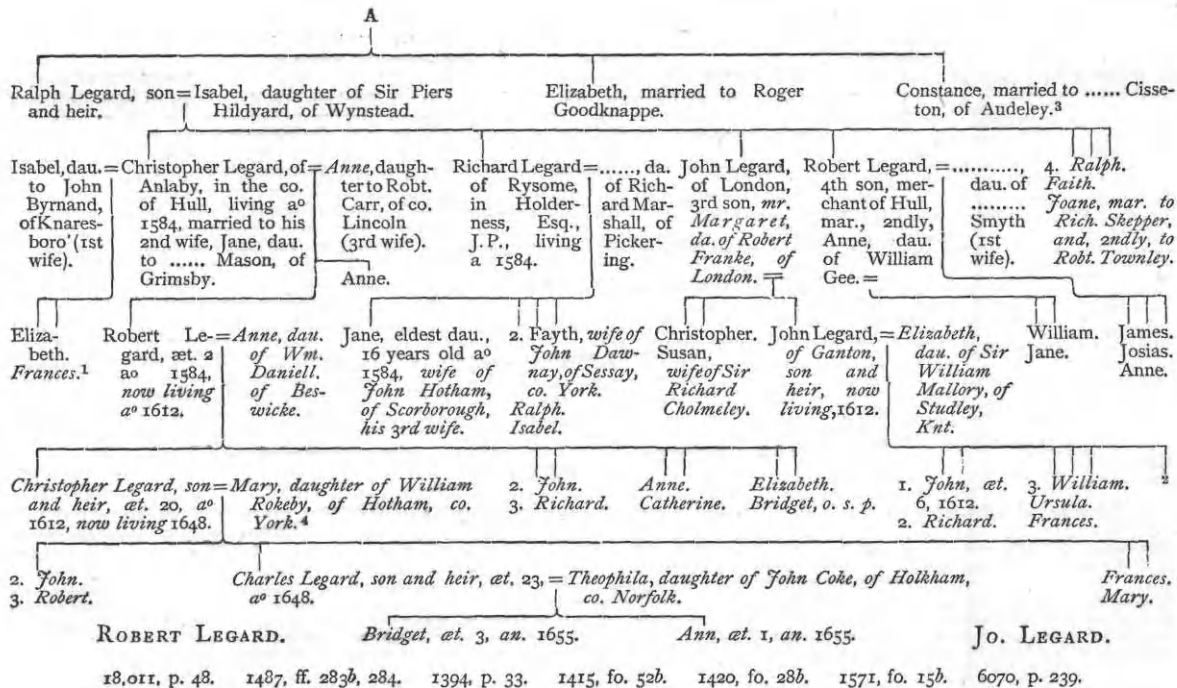 A
Ralph Legard, son=Isabel, daughter of Sir Piers
and heir. Hildyard, of Wynstead.
Elizabeth, married to Roger
Goodknappe.
Constance, married to ...... Cisse-
ton, of Audeley.³
Isabel, dau.
to John
Byrnand,
of Knares-
boro' (1st
wife).
=Christopher Legard, of=
Anlaby, in the co.
of Hull, living aº
1584, married to his
2nd wife, Jane, dau.
to ...... Mason, of
Grimsby.
Anne, daugh-
ter to Robt.
Carr, of co.
Lincoln
(3rd wife).
Anne.
Richard Legard=
of Rysome,
in Holder-
ness, Esq.,
J.P., living
a 1584.
......, da.
of Rich-
ard Mar-
shall, of
Picker-
ing.
John Legard,
of London,
3rd son, mr.
Margaret,
da. of Robert
Franke, of
London.=
Robert Legard,=
4th son, mer-
chant of Hull,
mar., 2ndly,
Anne, dau.
of William
Gee.=
..........,
dau. of
.........
Smyth
(1st
wife).
4. Ralph.
Faith.
Joane, mar. to
Rich. Skepper,
and, 2ndly, to
Robt. Townley.
Eliza-
beth.
Frances.¹
Robert Le-=
gard, æt. 2
aº 1584,
now living
aº 1612.
Anne, dau.
of Wm.
Daniell.
of Bes-
wicke.
Jane, eldest dau.,
16 years old aº
1584, wife of
John Hotham,
of Scorborough,
his 3rd wife.
2. Fayth, wife of
John Daw-
nay, of Sessay,
co. York.
Ralph.
Isabel.
Christopher.
Susan,
wife of Sir
Richard
Cholmeley.
John Legard,=
of Ganton,
son and
heir, now
living, 1612.
Elizabeth,
dau. of Sir
William
Mallory, of
Studley,
Knt.
William.
Jane.
James.
Josias.
Anne.
Christopher Legard, son=Mary, daughter of William
and heir, æt. 20, aº Rokeby, of Hotham, co.
1612, now living 1648. York.⁴
2. John.
3. Richard.
Anne.
Catherine.
Elizabeth.
Bridget, o. s. p.
1. John, æt.
6, 1612.
2. Richard.
3. William.
Ursula.
Frances.
²
2. John.
3. Robert.
Charles Legard, son and heir, æt. 23,=Theophila, daughter of John Coke, of Holkham,
aº 1648. co. Norfolk.
Frances.
Mary.
ROBERT LEGARD. Bridget, æt. 3, an. 1655. Ann, æt. 1, an. 1655. JO. LEGARD.
18,011, p. 48. 1487, ff. 283b, 284. 1394, p. 33. 1415, fo. 52b. 1420, fo. 28b. 1571, fo. 15b. 6070, p. 239.